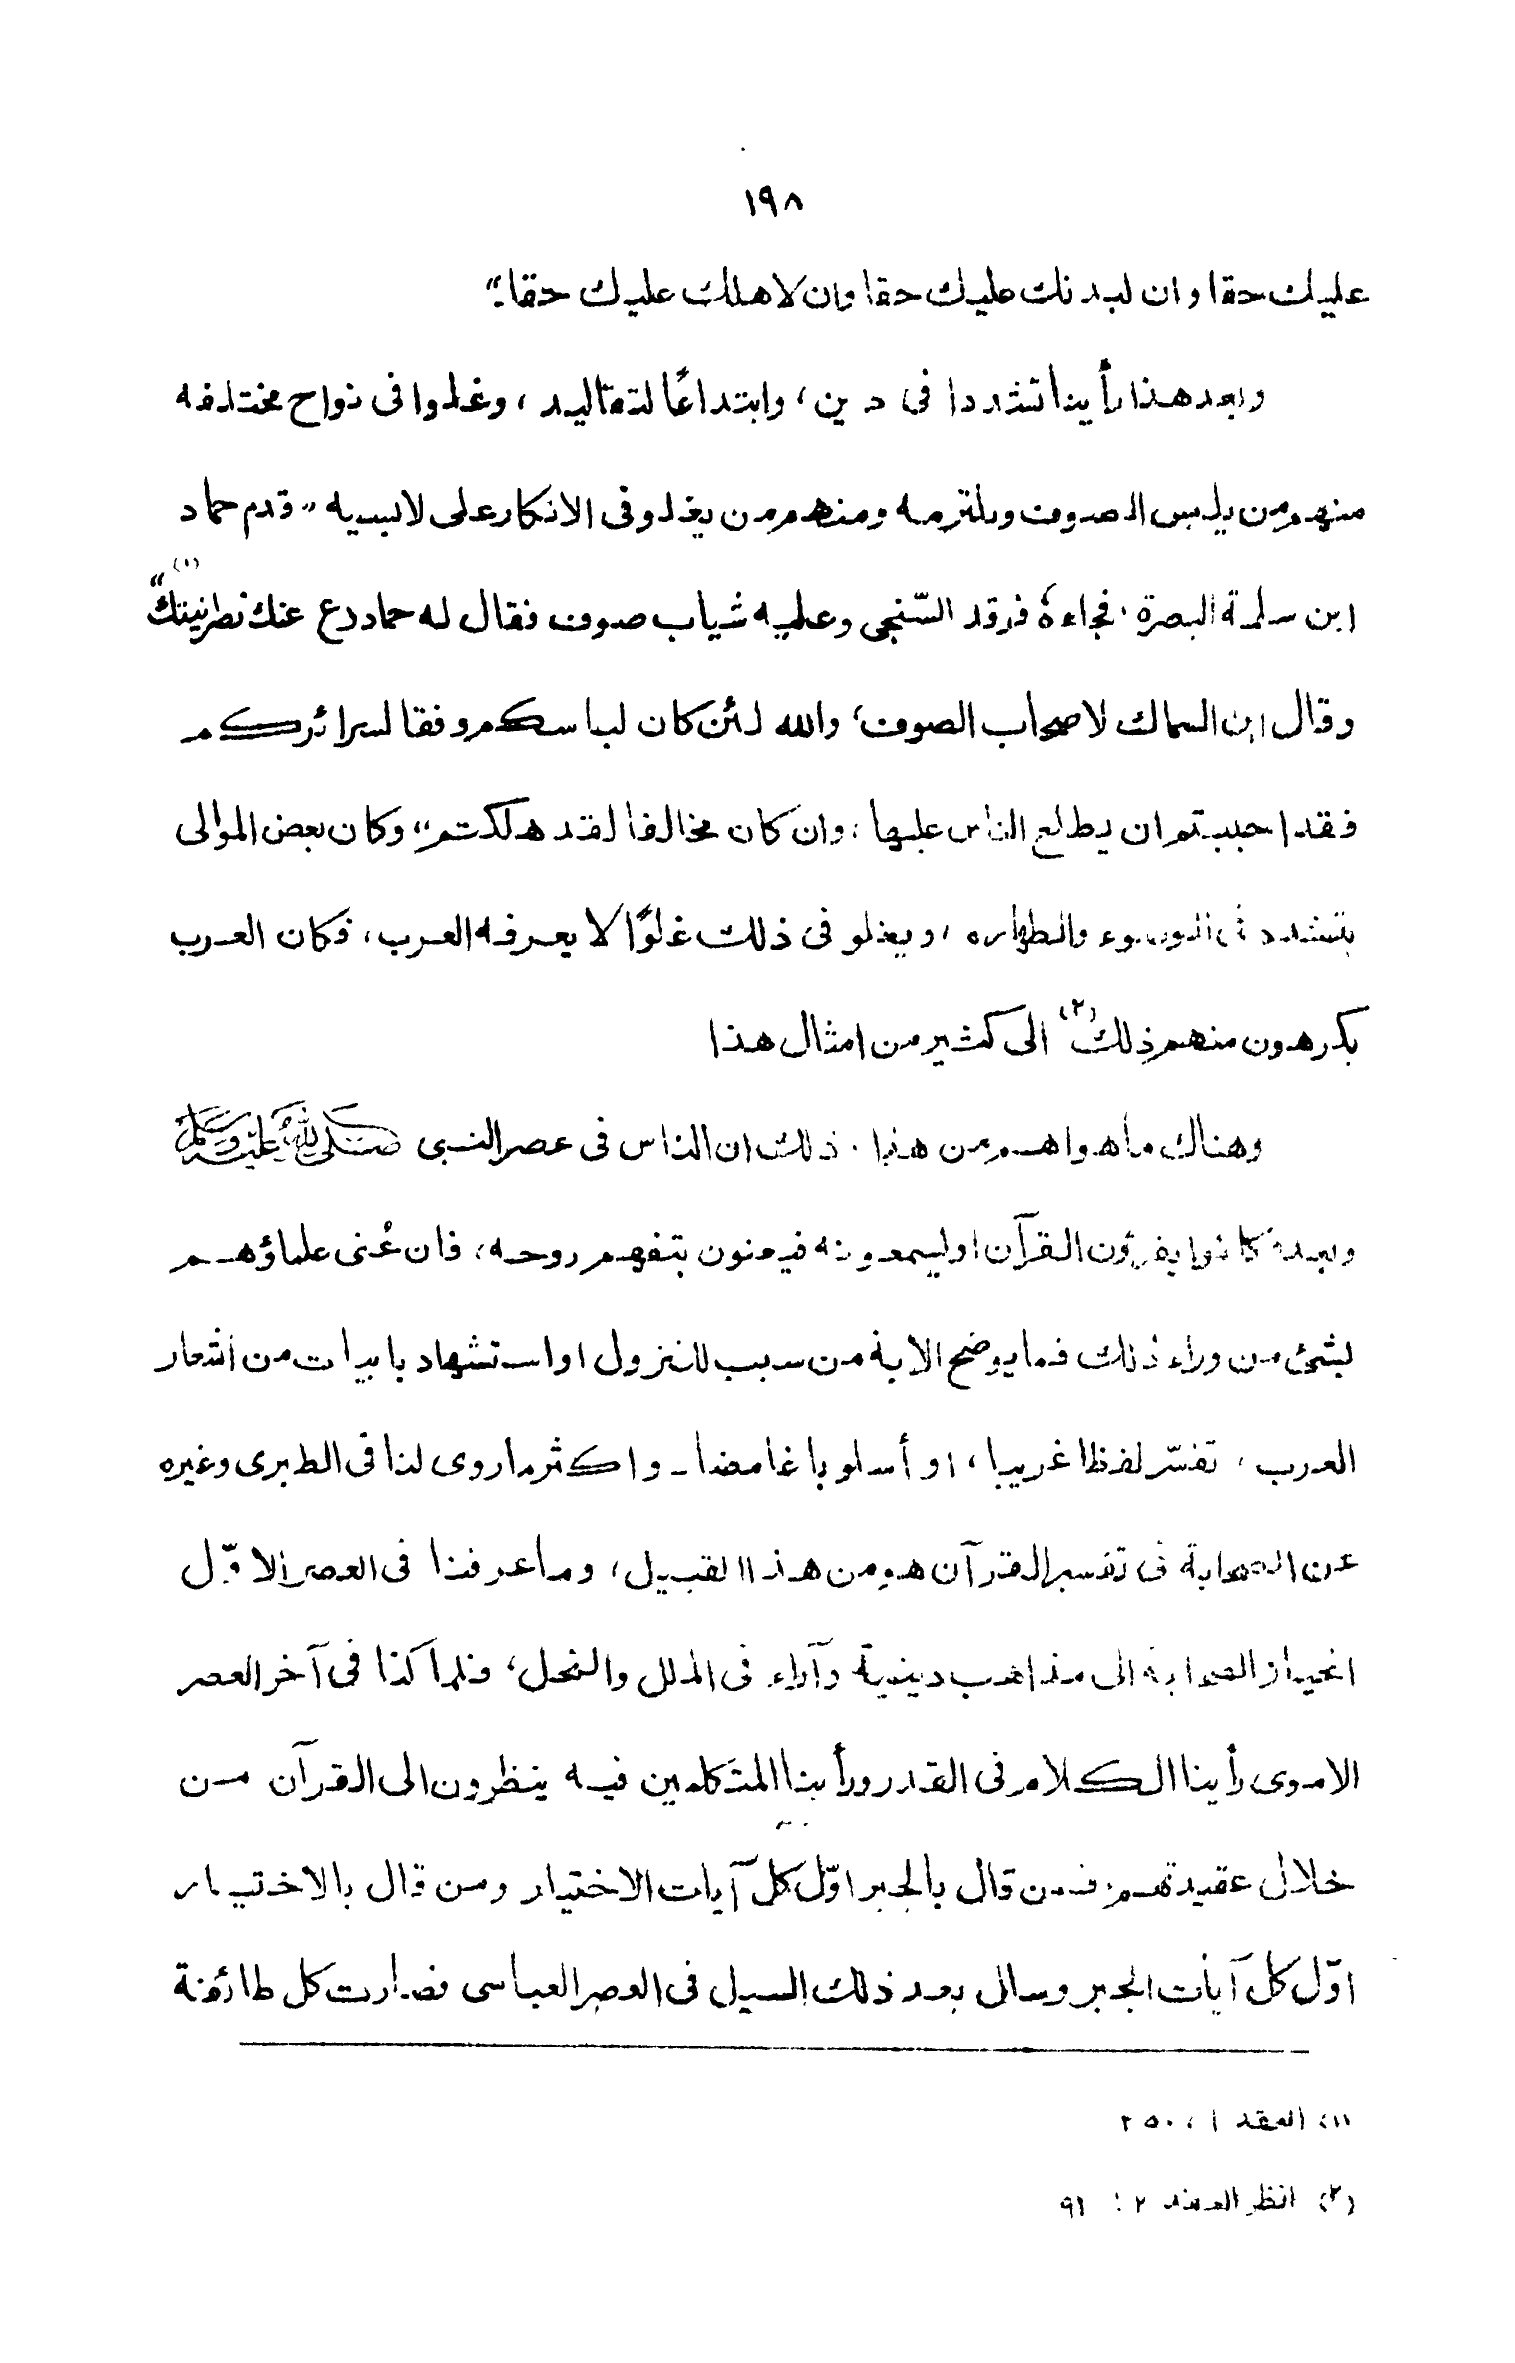 ١٩٨
عليك حقا وان لبدنك عليك حقا وان لاهلك عليك حقا."
وبعد هذا رأينا تشددا فى دين، وابتداعًا لتقاليد، وغلوا فى نواح مختلفه
منهم من يلبس الصوف ويلتزمه ومنهم من يغلو فى الانكار على لابسيه "قدم حماد
ابن سلمة البصرة، فجاءهٗ فرقد السّنجى وعليه شياب صوف فقال له حماد دع عنك نصرانيتك" (١)
وقال ابن السماك لاصحاب الصوف، والله لئن كان لباسكم وفقا لسرائركم
فقد احببتم ان يطلع الناس عليها، وان كان مخالفا لقد هلكتم" وكان بعض الموالى
يتشدد فى الوضوء والطهاره، ويغلو فى ذلك غلوًا لا يعرفه العرب، فكان العرب
يكرهون منهم ذلك (٢) الى كثير من امثال هذا
وهناك ما هو اهم من هذا. ذلك ان الناس فى عصر النبى صلى الله عليه وسلم
وبعده كانوا يقرئون القرآن او ليسمعونه فيعنون بتفهم روحه، فان عُنى علماؤهم
لبشئ من وراء ذلك فما يوضح الاية من سبب للنزول او استشهاد بابيات من اشعار
العرب، تفسّر لفظا غريبا، او أسلوبا غامضا ـ واكثر ما روى لنا فى الطبرى وغيره
عن الصحابة فى تفسير القرآن هو من هذا القبيل، وما عرفنا فى العصر الاوّل
انحياز الصحابة الى مذاهب دينية وآراء فى الملل والنحل، فلما كنا فى آخر العصر
الاموى رأينا الكلام فى القدر ورأينا المتكلمين فيه ينظرون الى القرآن من
خلال عقيدتهم، فمن قال بالجبر اوّل كل آيات الاختيار ومن قال بالاختيار
اوّل كل آيات الجبر وسال بعد ذلك السيل فى العصر العباسى فصارت كل طائفة
(١) العقد ١، ٢٥٠
(٢) انظر العقد ٢ : ٩١